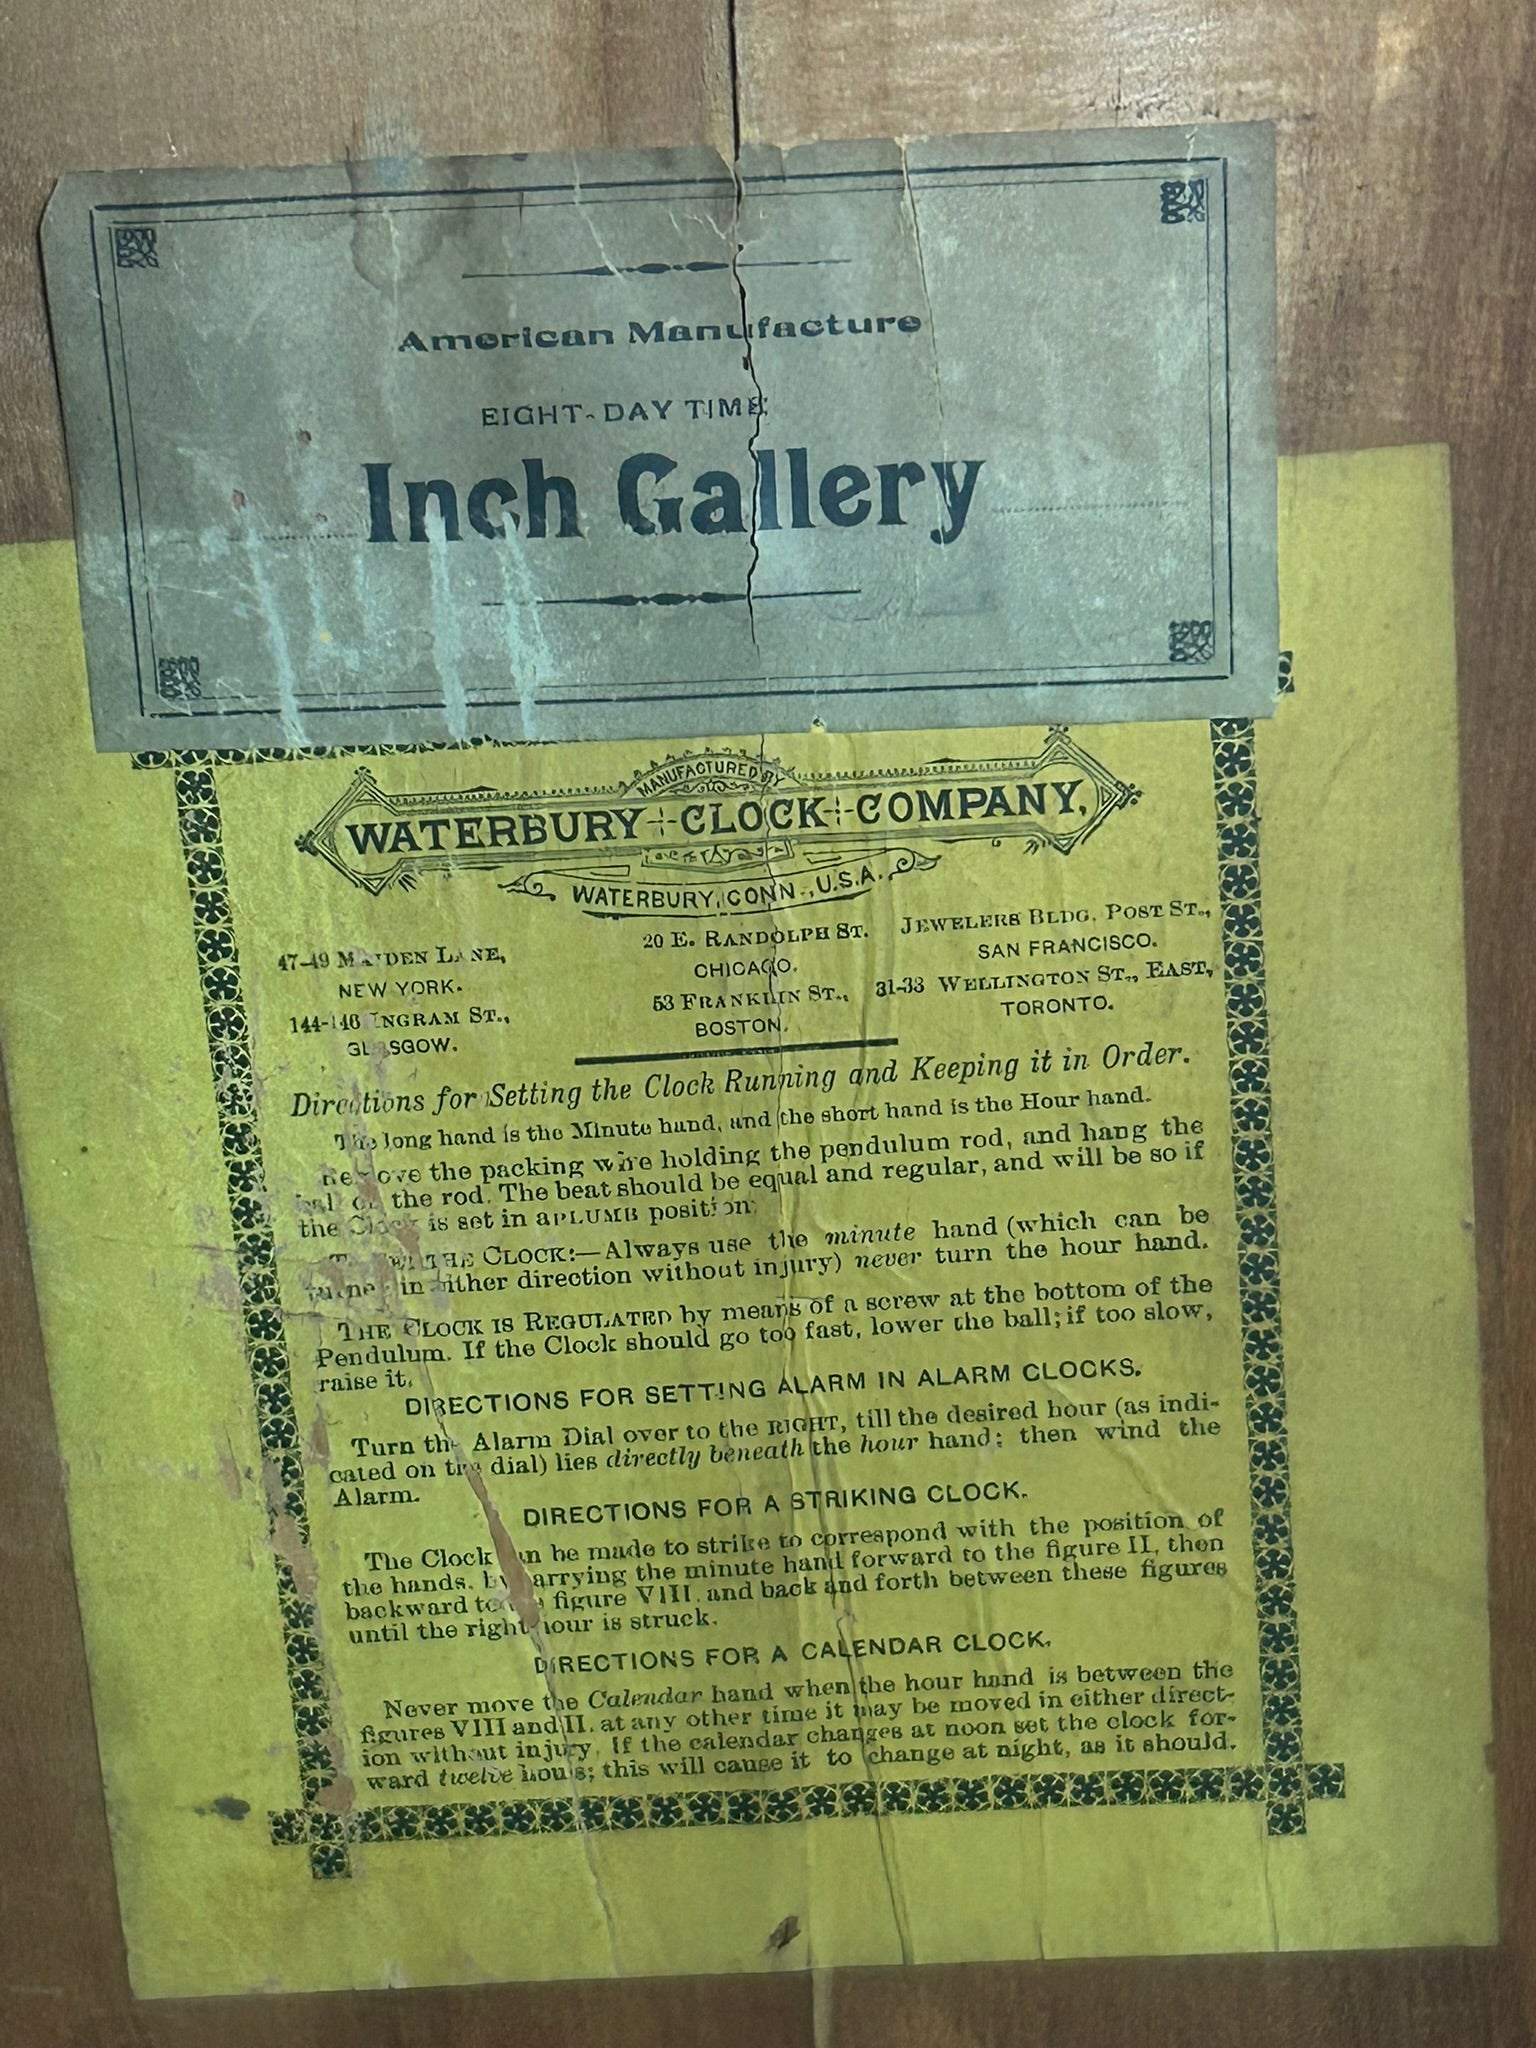 American Manufacture
EIGHT-DAY TIME
Inch Gallery
MANUFACTURED BY
WATERBURY CLOCK COMPANY,
WATERBURY, CONN., U.S.A.
47-49 MAIDEN LANE,
NEW YORK.
144-146 INGRAM ST.,
GLASGOW.
20 E. RANDOLPH ST.
CHICAGO.
53 FRANKLIN ST.,
BOSTON.
JEWELERS BLDG. POST ST.,
SAN FRANCISCO.
31-33 WELLINGTON ST., EAST,
TORONTO.
Directions for Setting the Clock Running and Keeping it in Order.
The long hand is the Minute hand, and the short hand is the Hour hand.
Remove the packing wire holding the pendulum rod, and hang the
ball on the rod. The beat should be equal and regular, and will be so if
the Clock is set in a PLUMB position.
THE CLOCK:—Always use the minute hand (which can be
turned in either direction without injury) never turn the hour hand.
THE CLOCK IS REGULATED by means of a screw at the bottom of the
Pendulum. If the Clock should go too fast, lower the ball; if too slow,
raise it.
DIRECTIONS FOR SETTING ALARM IN ALARM CLOCKS.
Turn the Alarm Dial over to the RIGHT, till the desired hour (as indi-
cated on the dial) lies directly beneath the hour hand; then wind the
Alarm.
DIRECTIONS FOR A STRIKING CLOCK.
The Clock can be made to strike to correspond with the position of
the hands, by carrying the minute hand forward to the figure II, then
backward to the figure VIII, and back and forth between these figures
until the right hour is struck.
DIRECTIONS FOR A CALENDAR CLOCK.
Never move the Calendar hand when the hour hand is between the
figures VIII and II, at any other time it may be moved in either direct-
ion without injury. If the calendar changes at noon set the clock for-
ward twelve hours; this will cause it to change at night, as it should.